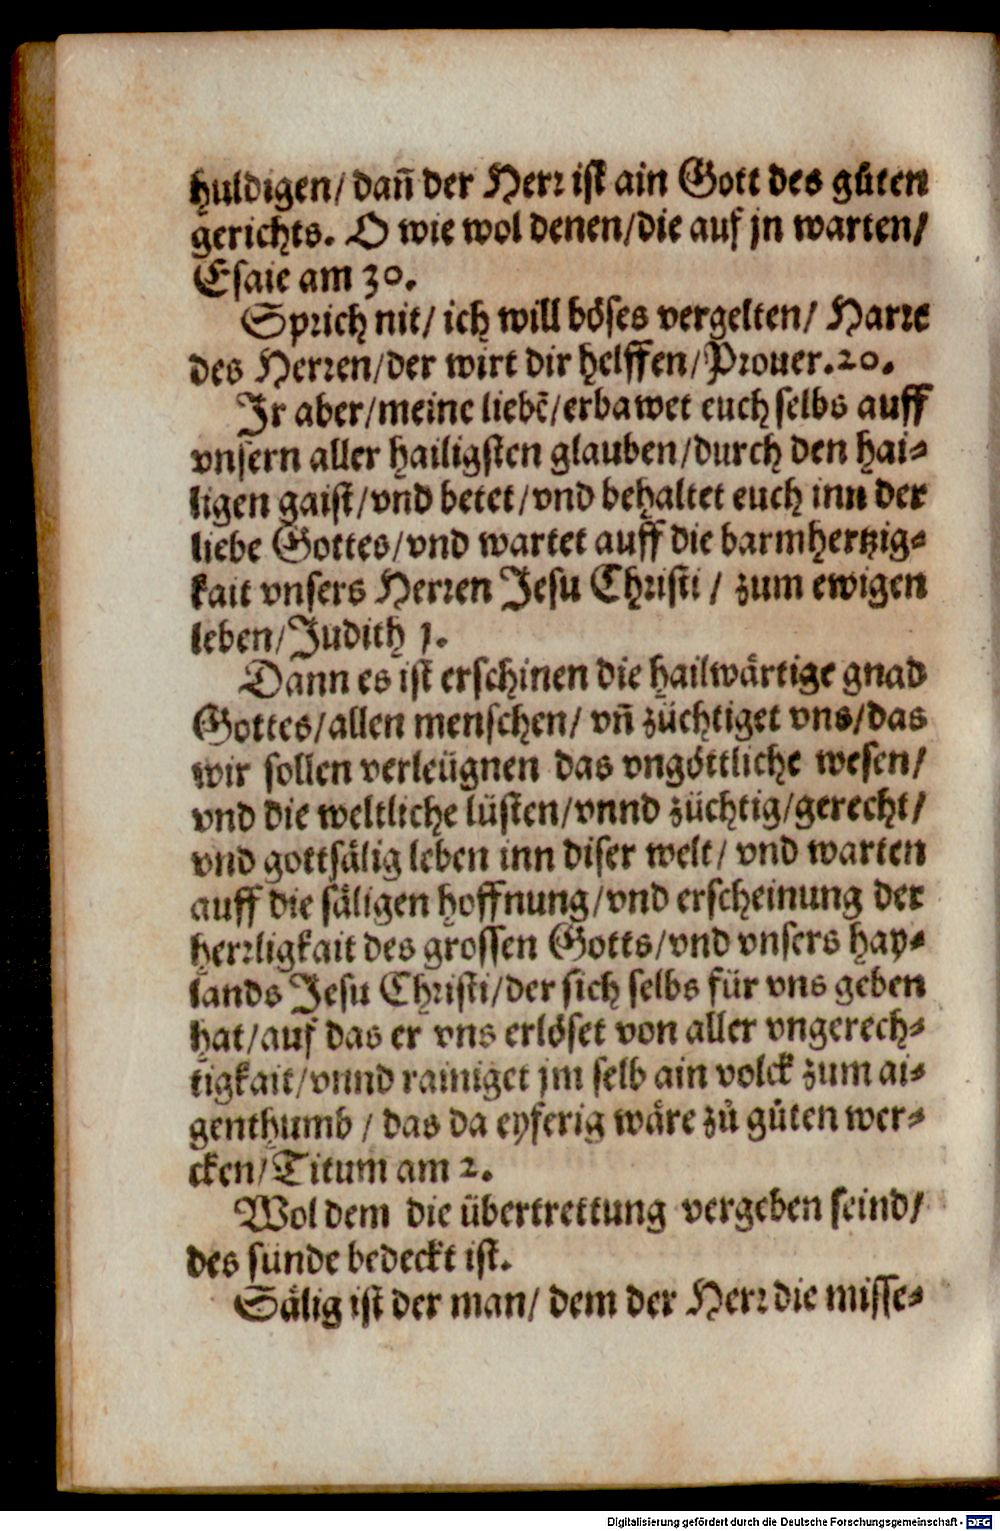 huldigen/ dañ der Herr ist ain Gott des gůten
gerichts. O wie wol denen/die auf jn warten/
Esaie am 30.
Sprich nit/ ich will böses vergelten/ Harre
des Herren/der wirt dir helffen/Prouer.20.
Jr aber/meine liebē/erbawet euch selbs auff
vnsern aller hailigsten glauben/durch den hai-
ligen gaist/vnd betet/vnd behaltet euch inn der
liebe Gottes/vnd wartet auff die barmhertzig-
kait vnsers Herren Jesu Christi / zum ewigen
leben/Judith 1.
Dann es ist erschinen die hailwärtige gnad
Gottes/allen menschen/ vñ züchtiget vns/das
wir sollen verleügnen das vngöttliche wesen/
vnd die weltliche lüsten/vnnd züchtig/gerecht/
vnd gottsälig leben inn diser welt/ vnd warten
auff die säligen hoffnung/vnd erscheinung der
herrligkait des grossen Gotts/vnd vnsers hay-
lands Jesu Christi/der sich selbs für vns geben
hat/auf das er vns erlöset von aller vngerech-
tigkait/vnnd rainiget jm selb ain volck zum ai-
genthumb / das da eyferig wäre zů gůten wer-
cken/Titum am 2.
Wol dem die übertrettung vergeben seind/
des sünde bedeckt ist.
Sälig ist der man/ dem der Herr die misse-
Digitalisierung gefördert durch die Deutsche Forschungsgemeinschaft - DFG